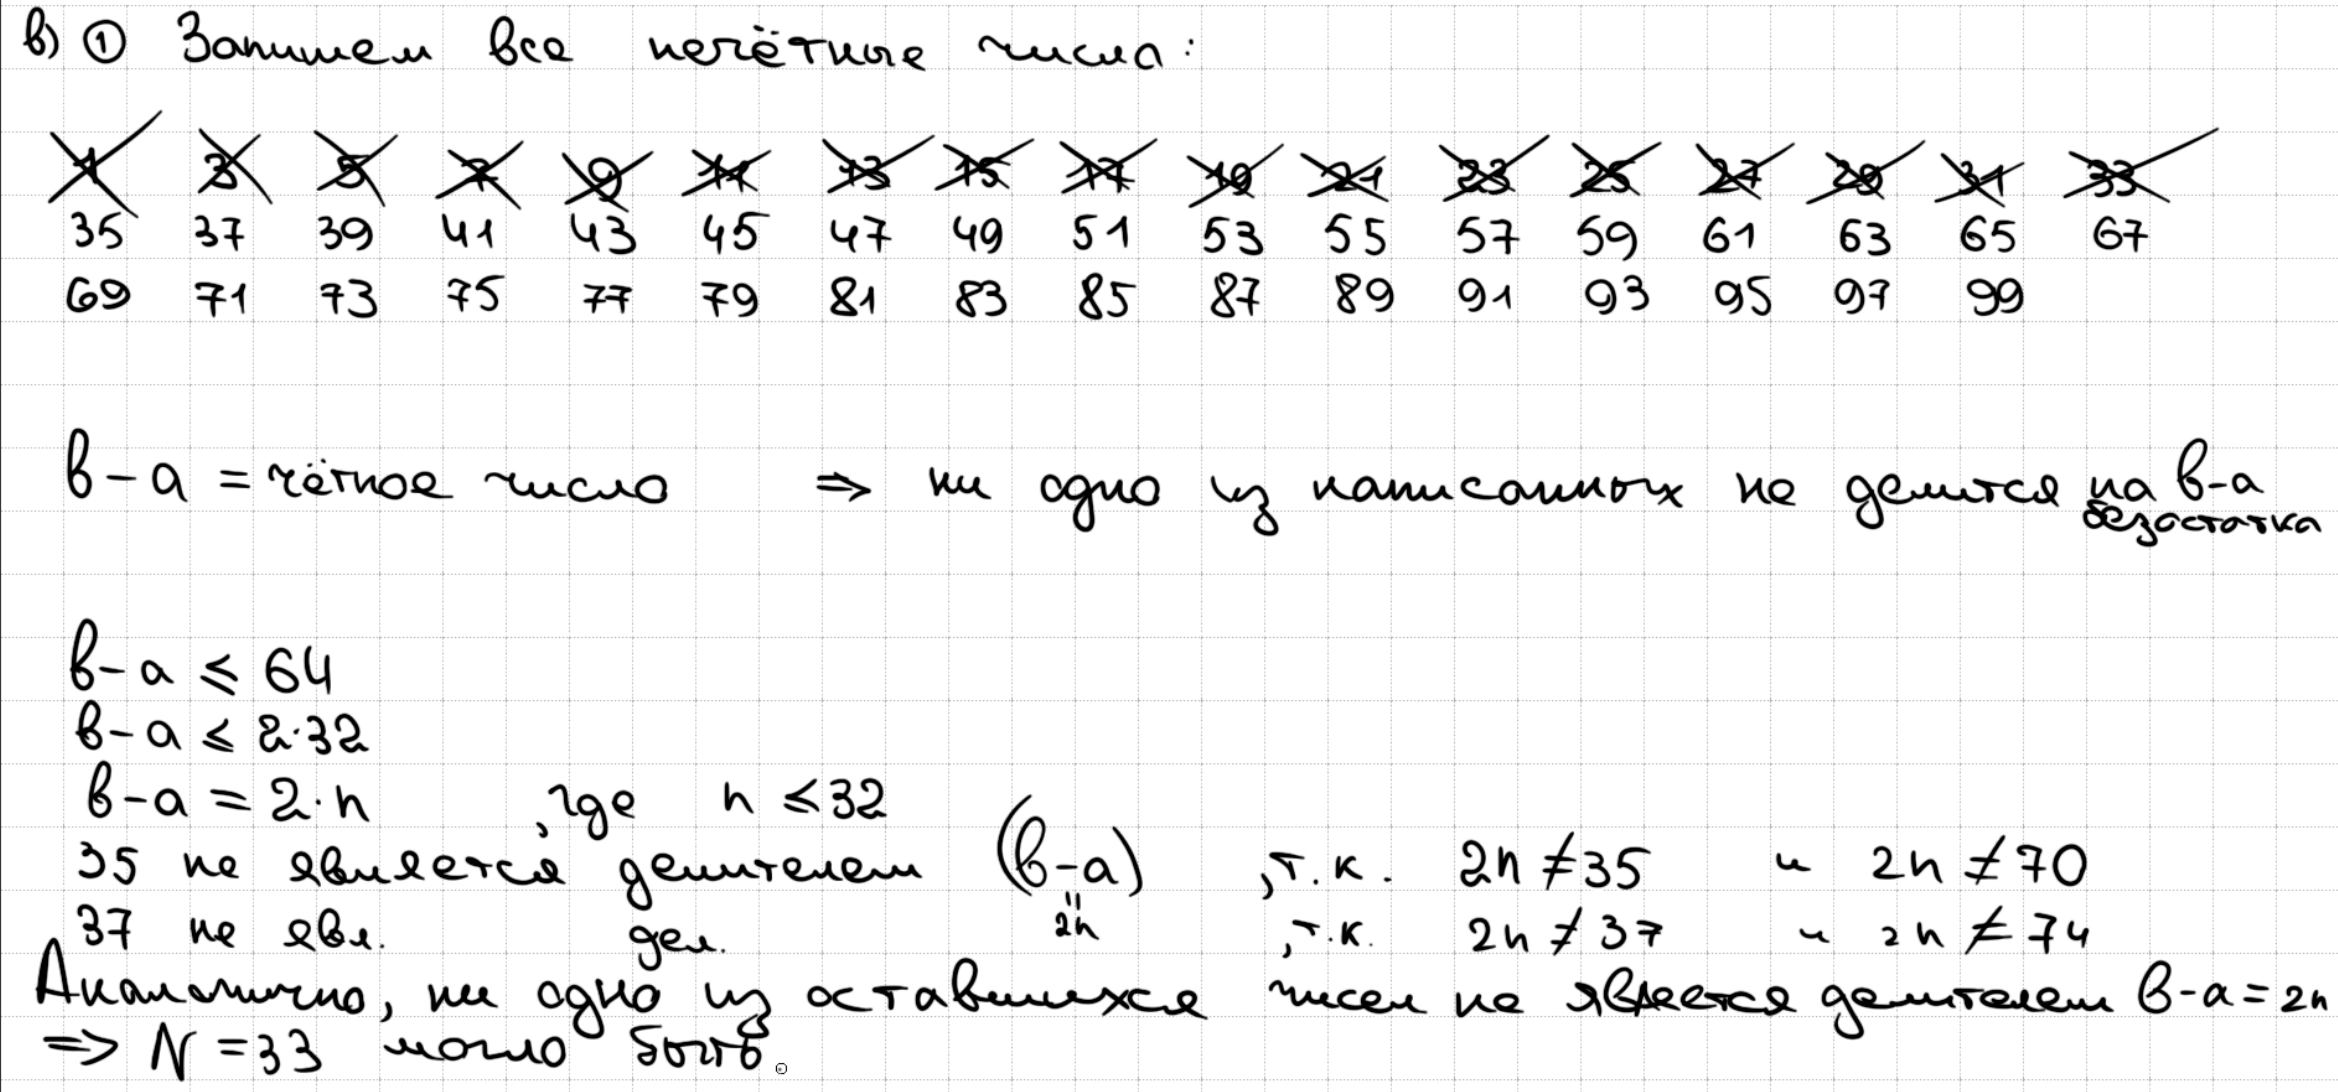 в) ① Запишем все нечётные числа:
1 3 5 7 9 11 13 15 17 19 21 23 25 27 29 31 33
35 37 39 41 43 45 47 49 51 53 55 57 59 61 63 65 67
69 71 73 75 77 79 81 83 85 87 89 91 93 95 97 99
в-а = чётное число ⇒ ни одно из написанных не делится на в-а
без остатка
в-а ≤ 64
в-а ≤ 2·32
в-а = 2·n , где n ≤ 32
35 не является делителем (в-а) , т.к. 2n ≠ 35 и 2n ≠ 70
"
37 не явл. дел. 2n , т.к. 2n ≠ 37 и 2n ≠ 74
Аналогично, ни одно из оставшихся чисел не является делителем в-а = 2n
⇒ N = 33 могло быть.